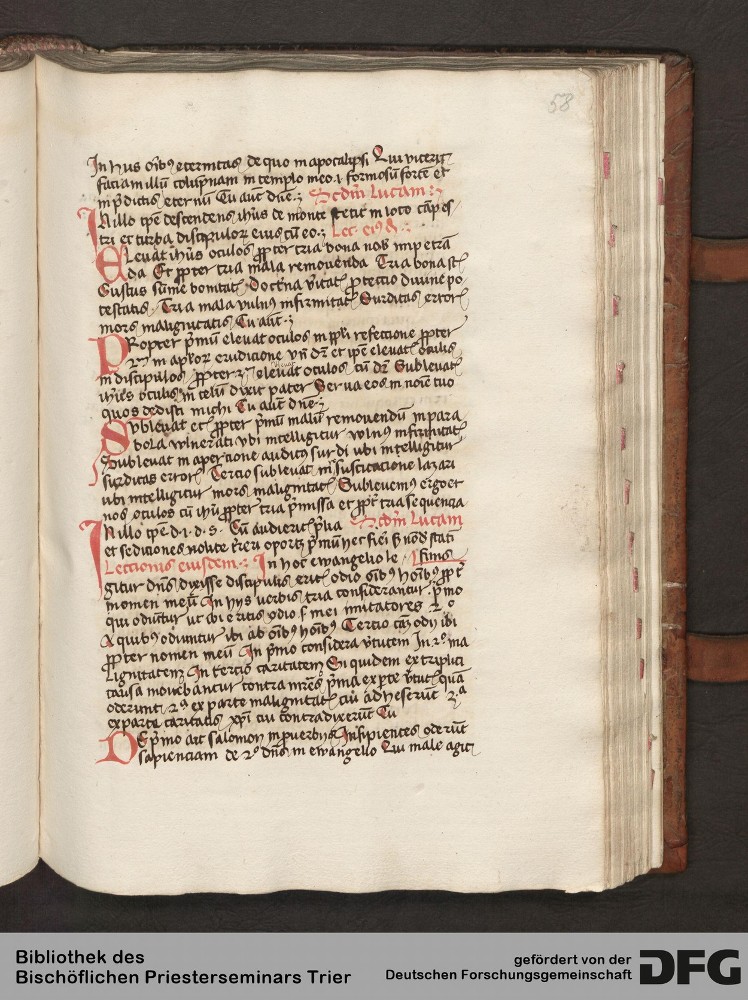 58
In hys oībꝫ eternitas de quo in apocalipsi Qui vicerit
faciam illū columpnam in templo meo ⁊ formosū forte et
in p̄dictis eternū Tu aut dn̄e Scd̄m lucam
N illo tpe descendens ihūs de monte stetit in loco cāpes
tri et turba discipulor eius cū eo Lec eiusd
Eleuat ihūs oculos ꝓpter tria bona nob impetrā
da Et ꝓpter tria mala remouenda Tria bona st
Gustus sūme bonitat doctrīa vītat ꝓtectio diuine po
testatis Tria mala vulnꝰ infirmitat Surditas erroꝝ
mors malignitatis Tu aut
PRopter p̄mū eleuat oculos in ppli refectione ꝓpter
2m in aplor eruditione vn̄ dr̄ et ipe eleuat oculis
in discipulos ꝓpter 3 eleuat oculos cū dr̄ Subleuat
ihūs oculis in celū dixit pater Serua eos in noīe tuo
quos dedisti michi Tu aut dn̄e
Subleuat et ꝓpter p̄mū malū remouendū in para
bola vulnerati vbi intelligitur vulnꝰ infirmitat
Subleuat in apertione auditꝰ surdi vbi intelligitur
surditas erroꝝ Tercio subleuat in suscitacione lazari
ubi intelligitur mors malignitat Subleuemꝰ ergo et
nos oculos cū ihū ꝓpter tria p̄missa et ꝓpt tria sequencia
IN illo tpe d. i. d. s. Cū audierit p̄lia Scd̄m Lucam
et sediciones nolite t̄reri oportꝫ p̄mū hec fieri s nōd stati
Lectionis eiusdem In hoc ewangelio le finis
gitur dn̄s dixisse discipulis eritꝫ odio oībꝰ hoībꝰ ꝓpt
nomen meū In hys verbis tria considerantur p̄mo
qui odiūtur ut ibi eritis odio s mei imitatores 2o
A quibꝰ odiuntur ibi ab oībꝰ hoībꝰ Tercio cā odij ibi
ꝓpter nomen meū In p̄mo considera v̄tutem In 2o ma
lignitatem In tercio caritatem Si quidem ex triplici
causa mouebantur contra mr̄es p̄ma ex pte v̄tut quā
oderunt 2a ex parte malignitat cui adheserūt 3a
ex parte caritatis xp̄i cui contradixerūt Tu
DE p̄mo ait salomon in prouerbijs Insipientes oderūt
sapienciam de 2o dn̄s in ewangelio Qui male agit
Bibliothek des
Bischöflichen Priesterseminars Trier
gefördert von der
Deutschen Forschungsgemeinschaft
DFG